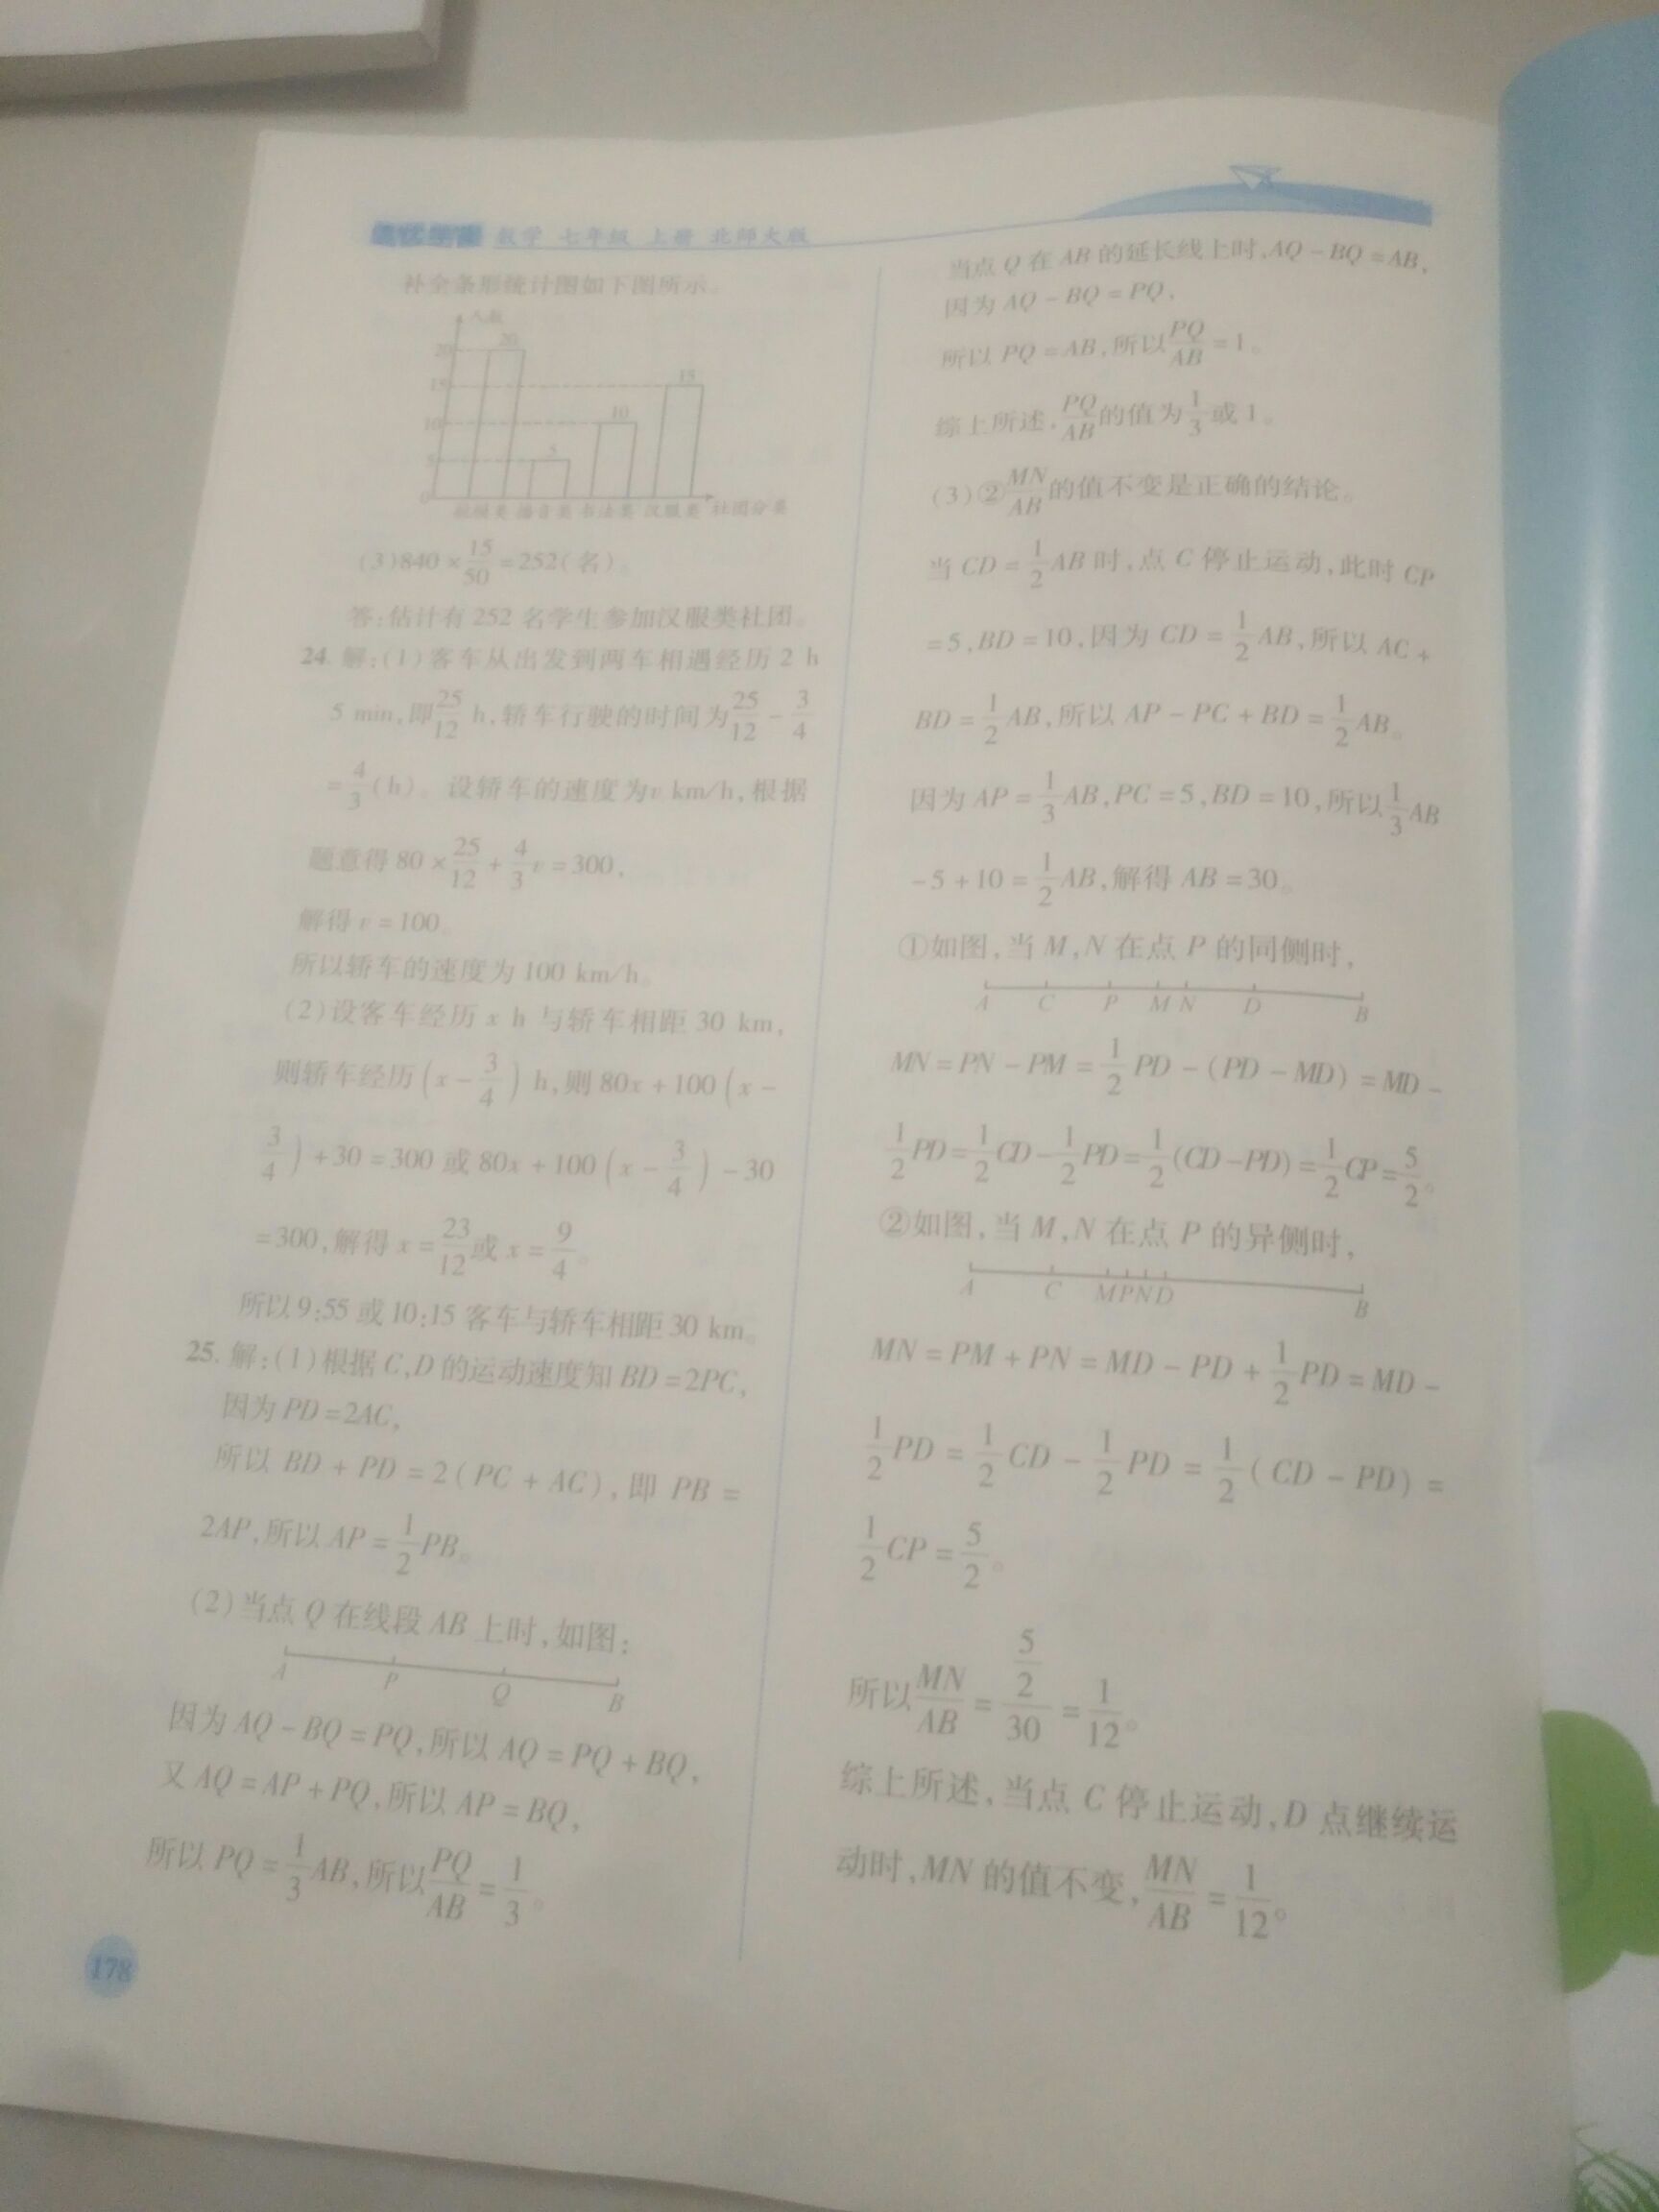 数学 七年级 上册 北师大版
补全条形统计图如下图所示。
人数
20
20
15
15
10
10
5
5
0
播音类 书法类 汉服类 社团分类
(3)840×15/50=252(名)。
答:估计有 252 名学生参加汉服类社团。
24. 解:(1)客车从出发到两车相遇经历 2 h
5 min,即25/12 h,轿车行驶的时间为25/12-3/4
=4/3(h)。设轿车的速度为v km/h,根据
题意得 80×25/12+4/3v=300,
解得 v=100。
所以轿车的速度为 100 km/h。
(2)设客车经历 x h 与轿车相距 30 km,
则轿车经历(x-3/4) h,则 80x+100(x-
3/4)+30=300 或 80x+100(x-3/4)-30
=300,解得 x=23/12或 x=9/4。
所以 9:55 或 10:15 客车与轿车相距 30 km。
25. 解:(1)根据 C,D 的运动速度知 BD=2PC,
因为 PD=2AC,
所以 BD+PD=2(PC+AC),即 PB=
2AP,所以 AP=1/2PB。
(2)当点 Q 在线段 AB 上时,如图:
A P Q B
因为 AQ-BQ=PQ,所以 AQ=PQ+BQ,
又 AQ=AP+PQ,所以 AP=BQ,
所以 PQ=1/3AB,所以PQ/AB=1/3。
178
当点 Q 在 AB 的延长线上时,AQ-BQ=AB,
因为 AQ-BQ=PQ,
所以 PQ=AB,所以PQ/AB=1。
综上所述,PQ/AB的值为1/3或 1。
(3)②MN/AB的值不变是正确的结论。
当 CD=1/2AB 时,点 C 停止运动,此时 CP
=5,BD=10,因为 CD=1/2AB,所以 AC+
BD=1/2AB,所以 AP-PC+BD=1/2AB。
因为 AP=1/3AB,PC=5,BD=10,所以1/3AB
-5+10=1/2AB,解得 AB=30。
①如图,当 M,N 在点 P 的同侧时,
A C P M N D B
MN=PN-PM=1/2PD-(PD-MD)=MD-
1/2PD=1/2CD-1/2PD=1/2(CD-PD)=1/2CP=5/2。
②如图,当 M,N 在点 P 的异侧时,
A C M P N D B
MN=PM+PN=MD-PD+1/2PD=MD-
1/2PD=1/2CD-1/2PD=1/2(CD-PD)=
1/2CP=5/2。
所以MN/AB=5/2/30=1/12。
综上所述,当点 C 停止运动,D 点继续运
动时,MN 的值不变,MN/AB=1/12。